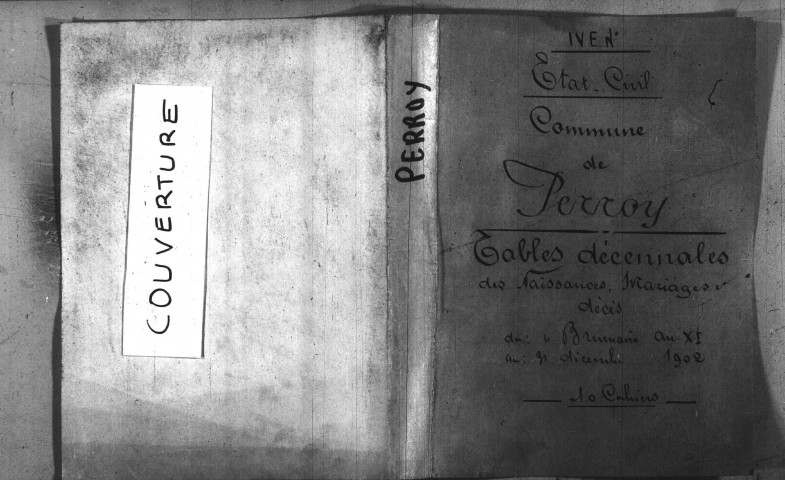 COUVERTURE
PERROY
IVE.N°
Etat-Civil
Commune
de
Perroy
Tables décennales
des Naissances, Mariages &
décès
du: 11 Brumaire An XI
au: 31 décembre 1902
10 Cahiers